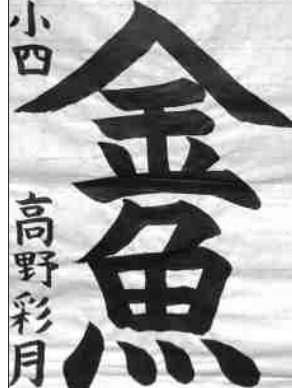 金魚
小四
高野彩月